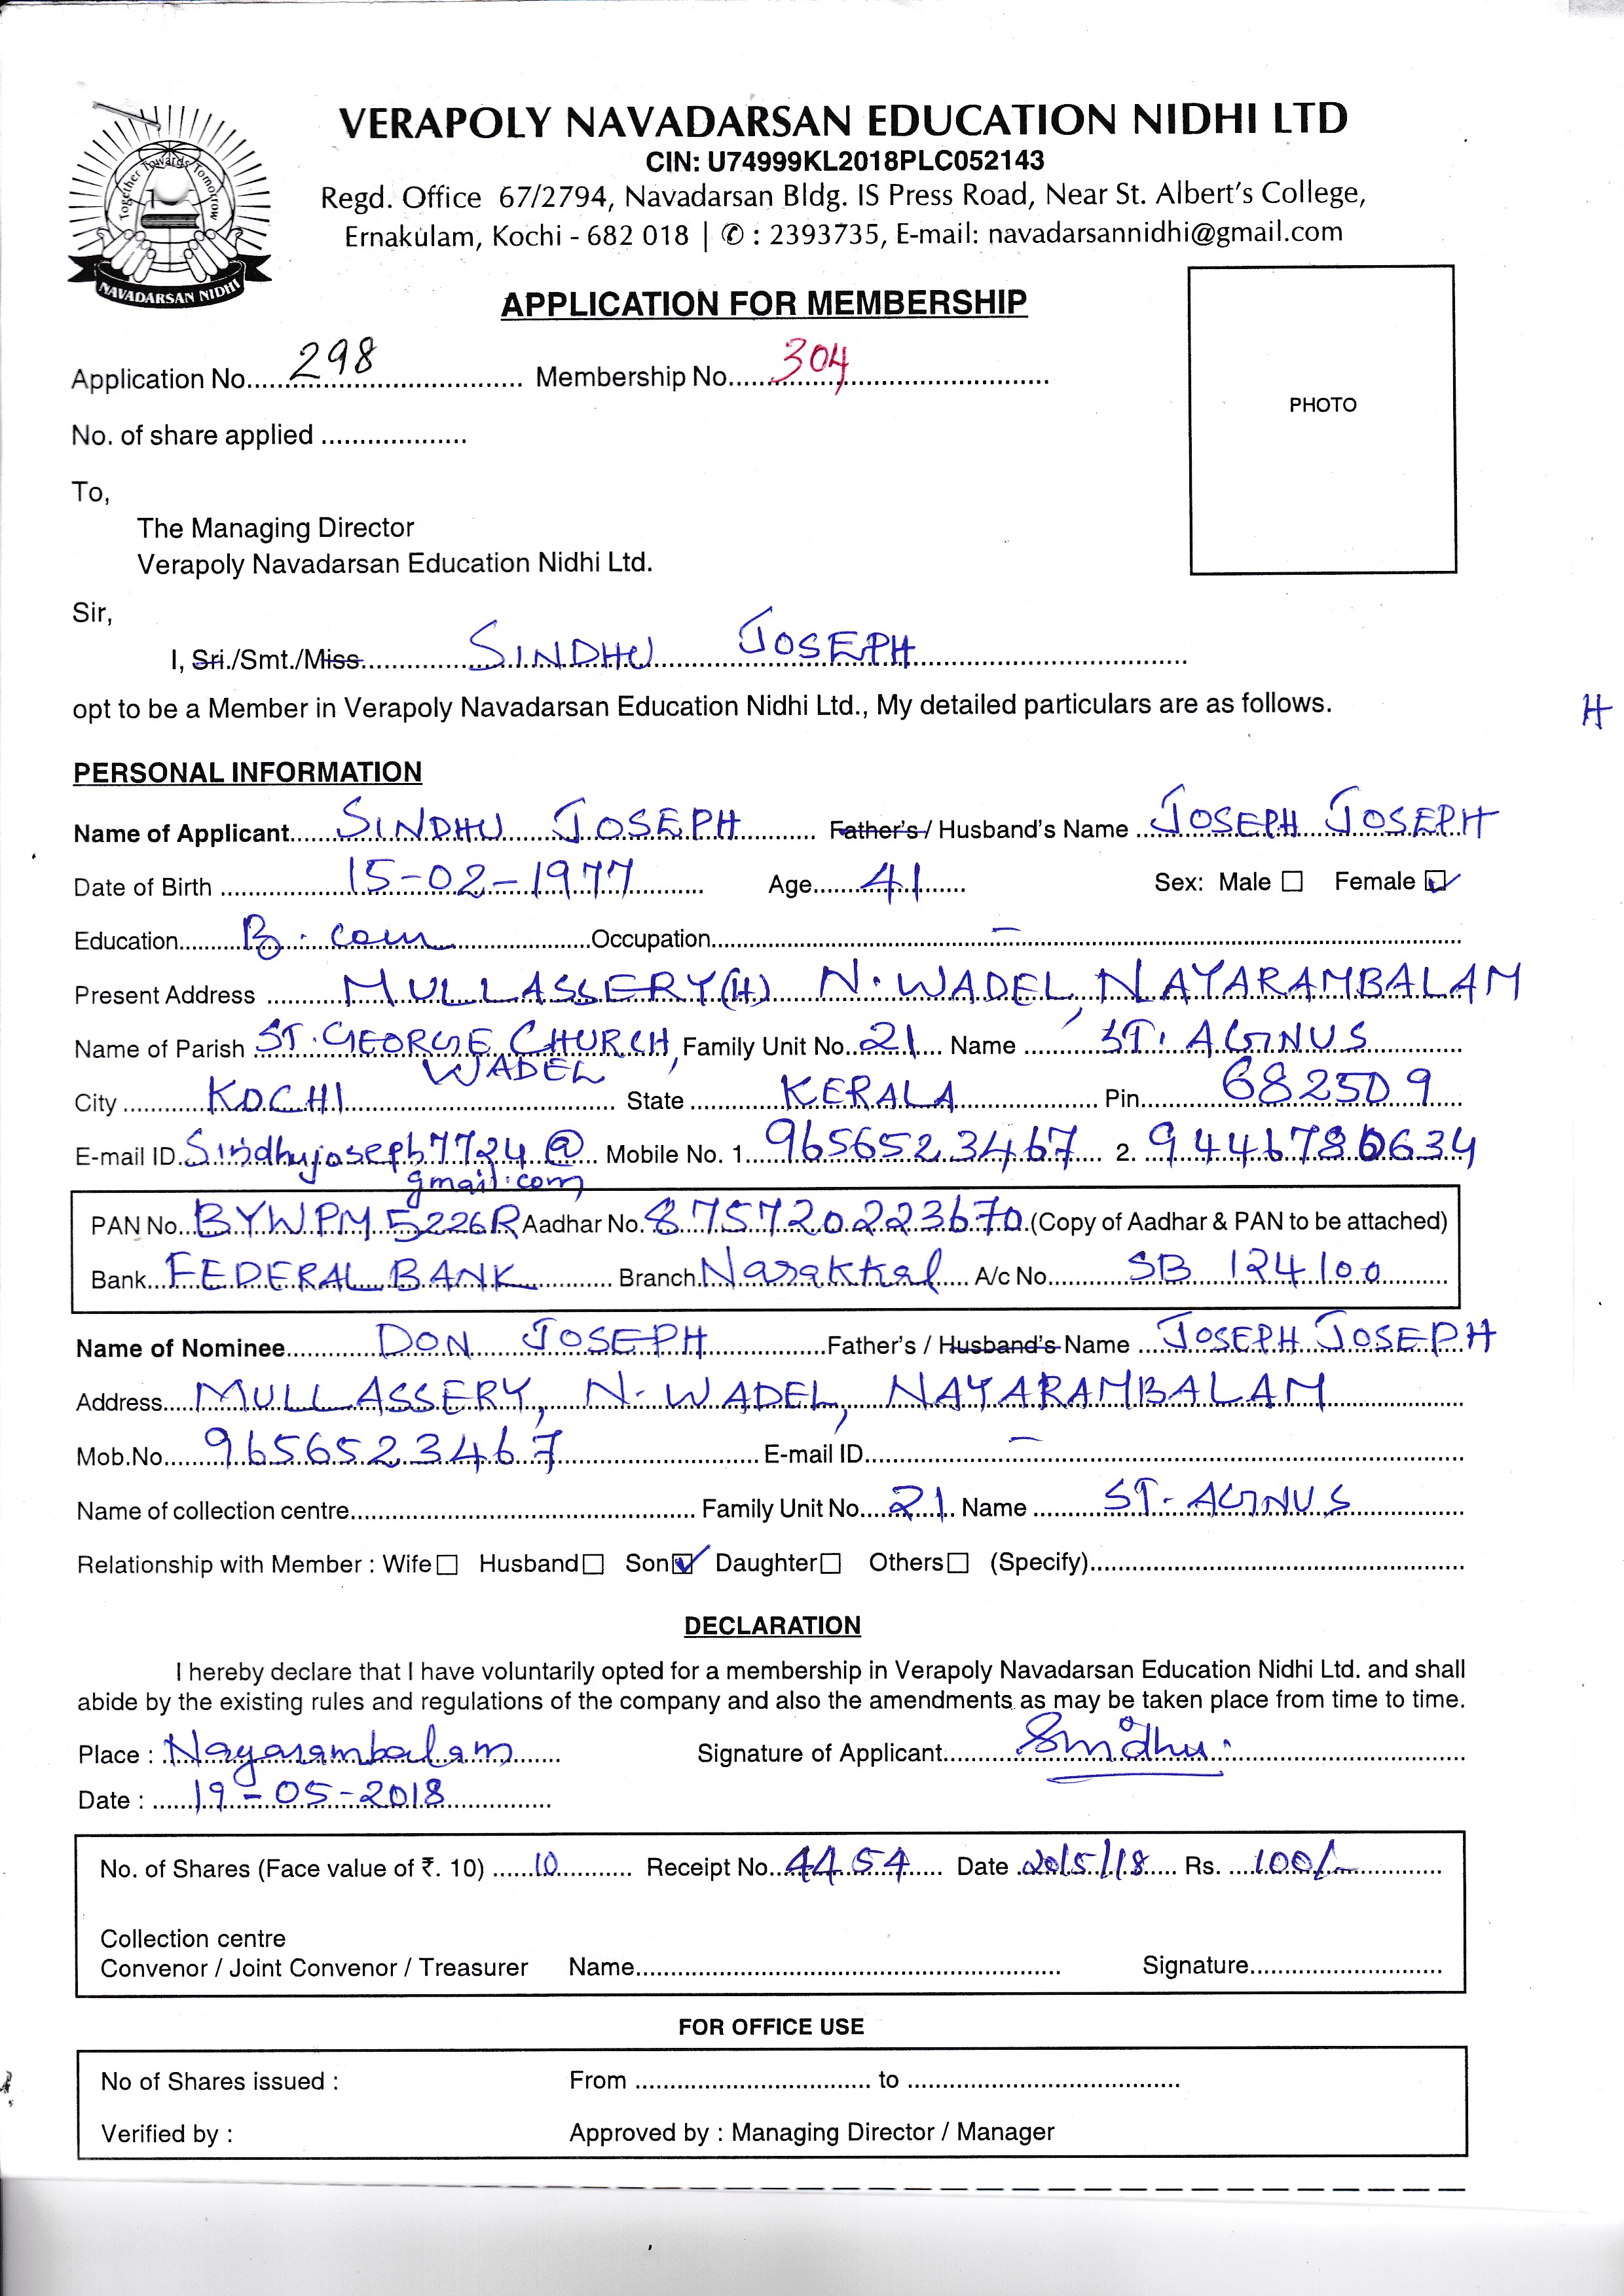 Together Towards Tomorrow
NAVADARSAN NIDHI
VERAPOLY NAVADARSAN EDUCATION NIDHI LTD
CIN: U74999KL2018PLC052143
Regd. Office 67/2794, Navadarsan Bldg. IS Press Road, Near St. Albert's College,
Ernakulam, Kochi - 682 018 | ✆ : 2393735, E-mail: navadarsannidhi@gmail.com
APPLICATION FOR MEMBERSHIP
Application No. 298 Membership No. 304
PHOTO
No. of share applied
To,
The Managing Director
Verapoly Navadarsan Education Nidhi Ltd.
Sir,
I, Sri./Smt./Miss SINDHU JOSEPH
opt to be a Member in Verapoly Navadarsan Education Nidhi Ltd., My detailed particulars are as follows.
H
PERSONAL INFORMATION
Name of Applicant SINDHU JOSEPH Father's / Husband's Name JOSEPH JOSEPH
Date of Birth 15-02-1977 Age 41 Sex: Male ☐ Female ☑
Education B.com Occupation –
Present Address MULLASSERY(H) N. WADEL, NAYARAMBALAM
Name of Parish ST. GEORGE CHURCH, Family Unit No. 21 Name ST. AGNUS
WADEL
City KOCHI State KERALA Pin 682509
E-mail ID Sindhujoseph7724@ Mobile No. 1. 9656523467 2. 9446780634
gmail.com
PAN No. BYWPM5226R Aadhar No. 875720223670 (Copy of Aadhar & PAN to be attached)
Bank FEDERAL BANK Branch Narakkal A/c No. SB 124100
Name of Nominee DON JOSEPH Father's / Husband's Name JOSEPH JOSEPH
Address MULLASSERY, N. WADEL, NAYARAMBALAM
Mob.No. 9656523467 E-mail ID –
Name of collection centre Family Unit No. 21 Name ST. AGNUS
Relationship with Member : Wife ☐ Husband ☐ Son ☑ Daughter ☐ Others ☐ (Specify)
DECLARATION
I hereby declare that I have voluntarily opted for a membership in Verapoly Navadarsan Education Nidhi Ltd. and shall
abide by the existing rules and regulations of the company and also the amendments as may be taken place from time to time.
Place : Nayarambalam Signature of Applicant Sindhu.
Date : 19-05-2018
No. of Shares (Face value of ₹. 10) 10 Receipt No. 4454 Date 20/5/18 Rs. 100/-
Collection centre
Convenor / Joint Convenor / Treasurer Name Signature
FOR OFFICE USE
No of Shares issued : From to
Verified by : Approved by : Managing Director / Manager